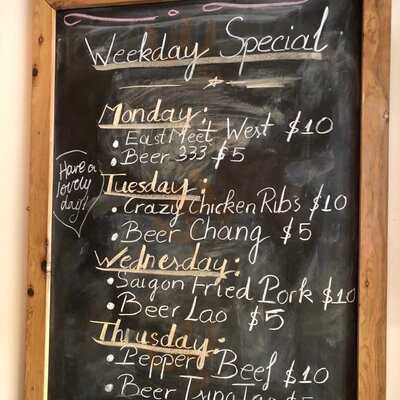 Weekday Special
Monday:
• East Meet West $10
• Beer 333 $5
Have a
lovely
day!
Tuesday:
• Crazy Chicken Ribs $10
• Beer Chang $5
Wednesday:
• Saigon Fried Pork $10
• Beer Lao $5
Thusday:
• Pepper Beef $10
• Beer Tsing Tao $5